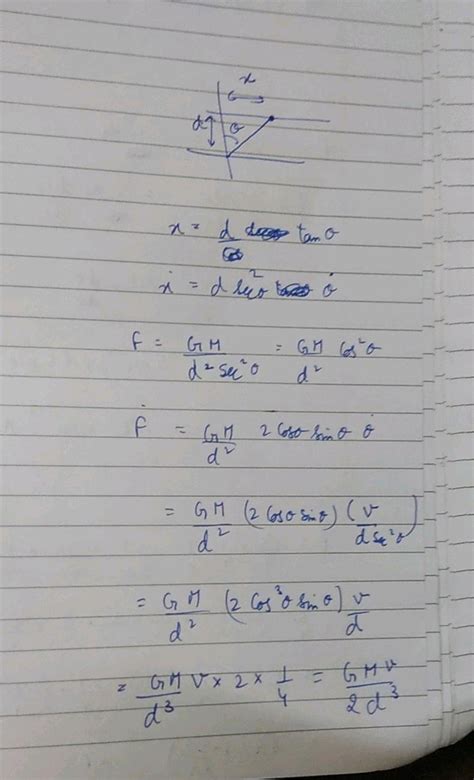 x
d θ
x = d/ tan θ
ẋ = d sec²θ θ̇
F = GM/(d² sec²θ) = GM/d² cos²θ
Ḟ = GM/d² 2 cosθ sin θ θ̇
= GM/d² (2 cosθ sinθ) (v/(d sec²θ))
= GM/d² (2 cos³θ sinθ) v/d
= GM/d³ v × 2 × 1/4 = GMv/2d³